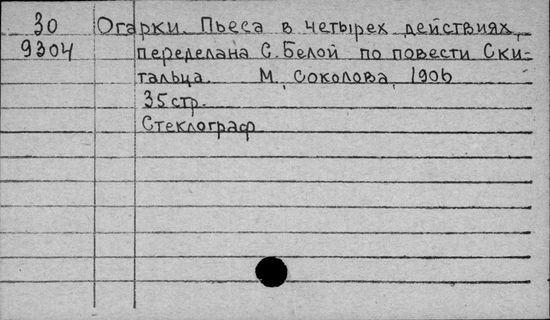 30 Огарки. Пьеса в четырех действиях,
9304 переделана С. Белой по повести Ски-
тальца. М., Соколова, 1906
35 стр.
Стеклограф